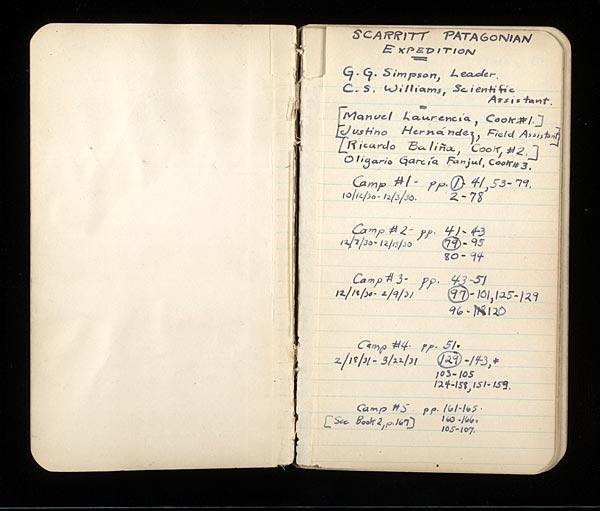 SCARRITT PATAGONIAN
EXPEDITION
G. G. Simpson, Leader.
C. S. Williams, Scientific
Assistant.
[Manuel Laurencia, Cook #1.]
[Justino Hernández, Field Assistant]
[Ricardo Baliña, Cook, #2.]
Oligario García Fanjul, Cook #3.
Camp #1- pp. 1- 41, 53-79.
10/12/30- 12/3/30. 2-78
Camp #2- pp. 41-43
12/7/30-12/15/30 79-95
80-94
Camp #3- pp. 43-51
12/18/30- 2/9/31 97-101, 125-129
96- 120
Camp #4- pp. 51.
2/18/31- 3/22/31 129-143,*
103-105
124-158, 151-159.
Camp #5 pp. 161-165.
[See Book 2, p. 167] 160-166.
105-107.